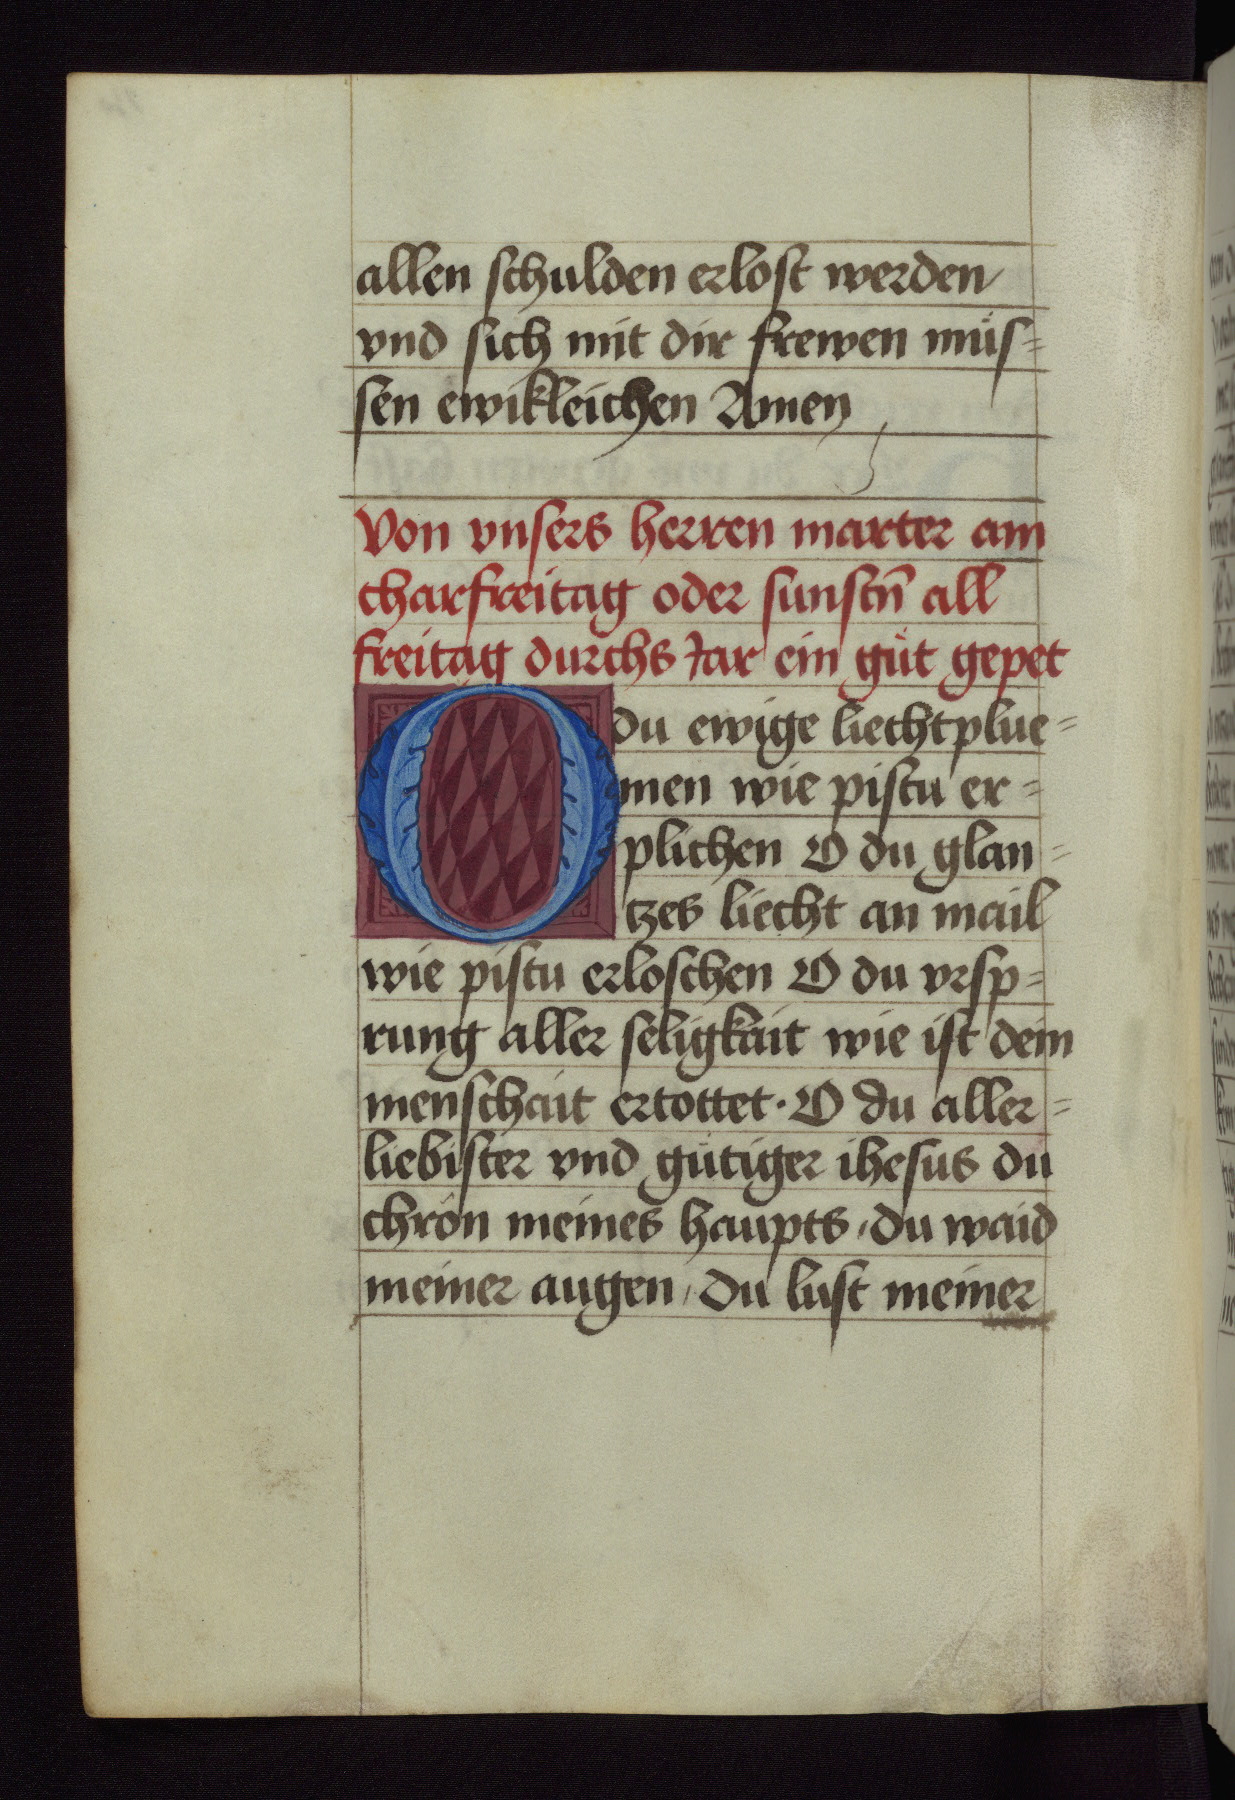 allen schulden erlost werden/
vnd sich mit dir frewen müs=
sen ewikleichen Amen
Von vnsers herren marter am
charfreitag oder sunstn̄ all
freitag durchs Jar ein gůt gepet
O du ewige liechtplue=
men wie pistu er=
plichen O du glan=
tzes liecht an mail
wie pistu erloschen O du vrsp=
rung aller seligkait wie ist dein
menschait ertottet · O du aller=
liebister vnd gütiger ihesus du
chron meines haupts / du waid
meiner augen / du lust meiner